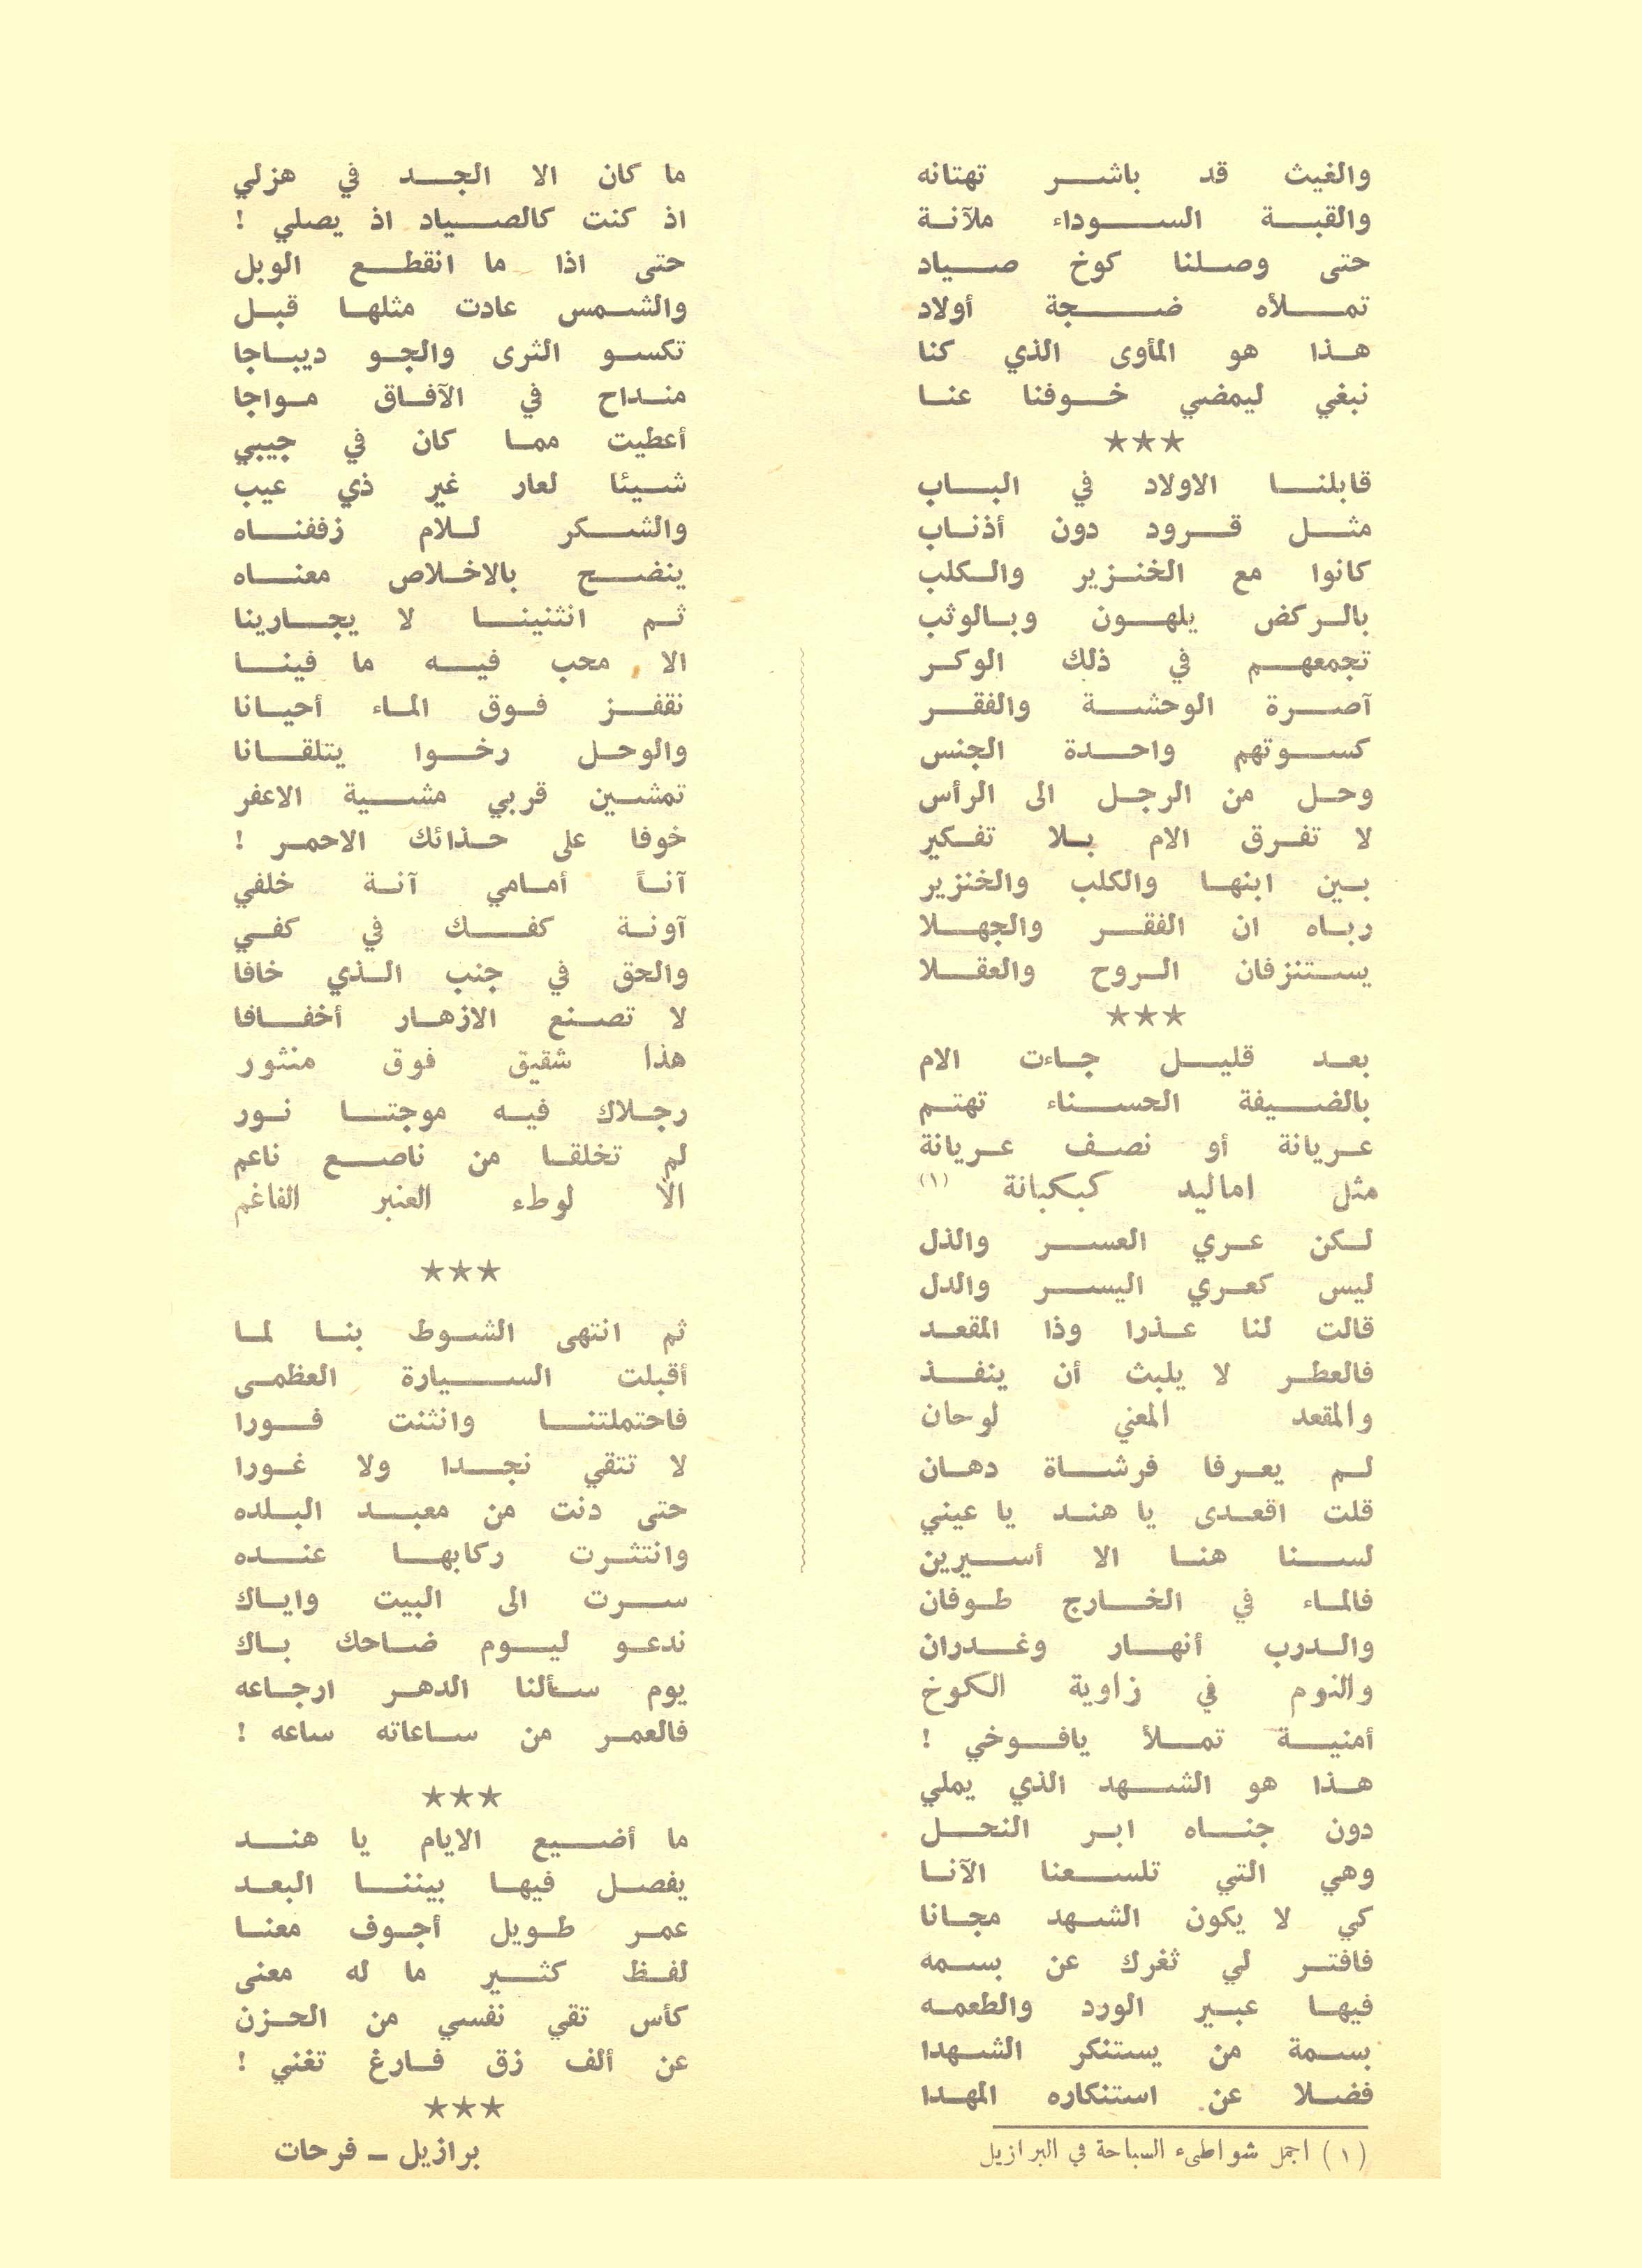 والغيث قد باشر تهتانه
والقبة السوداء ملآنة
حتى وصلنا كوخ صياد
تملأه ضجة أولاد
هذا هو المأوى الذي كنا
نبغي ليمضي خوفنا عنا
★★★
قابلنا الاولاد في الباب
مثل قرود دون أذناب
كانوا مع الخنزير والكلب
بالركض يلهون وبالوثب
تجمعهم في ذلك الوكر
آصرة الوحشة والفقر
كسوتهم واحدة الجنس
وحل من الرجل الى الرأس
لا تفرق الام بلا تفكير
بين ابنها والكلب والخنزير
رباه ان الفقر والجهلا
يستنزفان الروح والعقلا
★★★
بعد قليل جاءت الام
بالضيفة الحسناء تهتم
عريانة أو نصف عريانة
مثل اماليد كبكبانة (١)
لكن عري العسر والذل
ليس كعري اليسر والدل
قالت لنا عذرا وذا المقعد
فالعطر لا يلبث أن ينفذ
والمقعد المعني لوحان
لم يعرفا فرشاة دهان
قلت اقعدى يا هند يا عيني
لسنا هنا الا أسيرين
فالماء في الخارج طوفان
والدرب أنهار وغدران
والنوم في زاوية الكوخ
أمنية تملأ يافوخي !
هذا هو الشهد الذي يملي
دون جناه ابر النحل
وهي التي تلسعنا الآنا
كي لا يكون الشهد مجانا
فافتر لي ثغرك عن بسمه
فيها عبير الورد والطعمه
بسمة من يستنكر الشهدا
فضلا عن استنكاره المهدا
(١) اجمل شواطىء السباحة في البرازيل
ما كان الا الجد في هزلي
اذ كنت كالصياد اذ يصلي !
حتى اذا ما انقطع الوبل
والشمس عادت مثلها قبل
تكسو الثرى والجو ديباجا
منداح في الآفاق مواجا
أعطيت مما كان في جيبي
شيئا لعار غير ذي عيب
والشكر للام زففناه
ينضح بالاخلاص معناه
ثم انثنينا لا يجارينا
الا محب فيه ما فينا
نقفز فوق الماء أحيانا
والوحل رخوا يتلقانا
تمشين قربي مشية الاعفر
خوفا على حذائك الاحمر !
آناً أمامي آنة خلفي
آونة كفك في كفي
والحق في جنب الذي خافا
لا تصنع الازهار أخفافا
هذا شقيق فوق منثور
رجلاك فيه موجتا نور
لم تخلقا من ناصع ناعم
الا لوطء العنبر الفاغم
★★★
ثم انتهى الشوط بنا لما
أقبلت السيارة العظمى
فاحتملتنا وانثنت فورا
لا تتقي نجدا ولا غورا
حتى دنت من معبد البلده
وانتثرت ركابها عنده
سرت الى البيت واياك
ندعو ليوم ضاحك باك
يوم سألنا الدهر ارجاعه
فالعمر من ساعاته ساعه !
★★★
ما أضيع الايام يا هند
يفصل فيها بيننا البعد
عمر طويل أجوف معنا
لفظ كثير ما له معنى
كأس تقي نفسي من الحزن
عن ألف زق فارغ تغني !
★★★
برازيل – فرحات